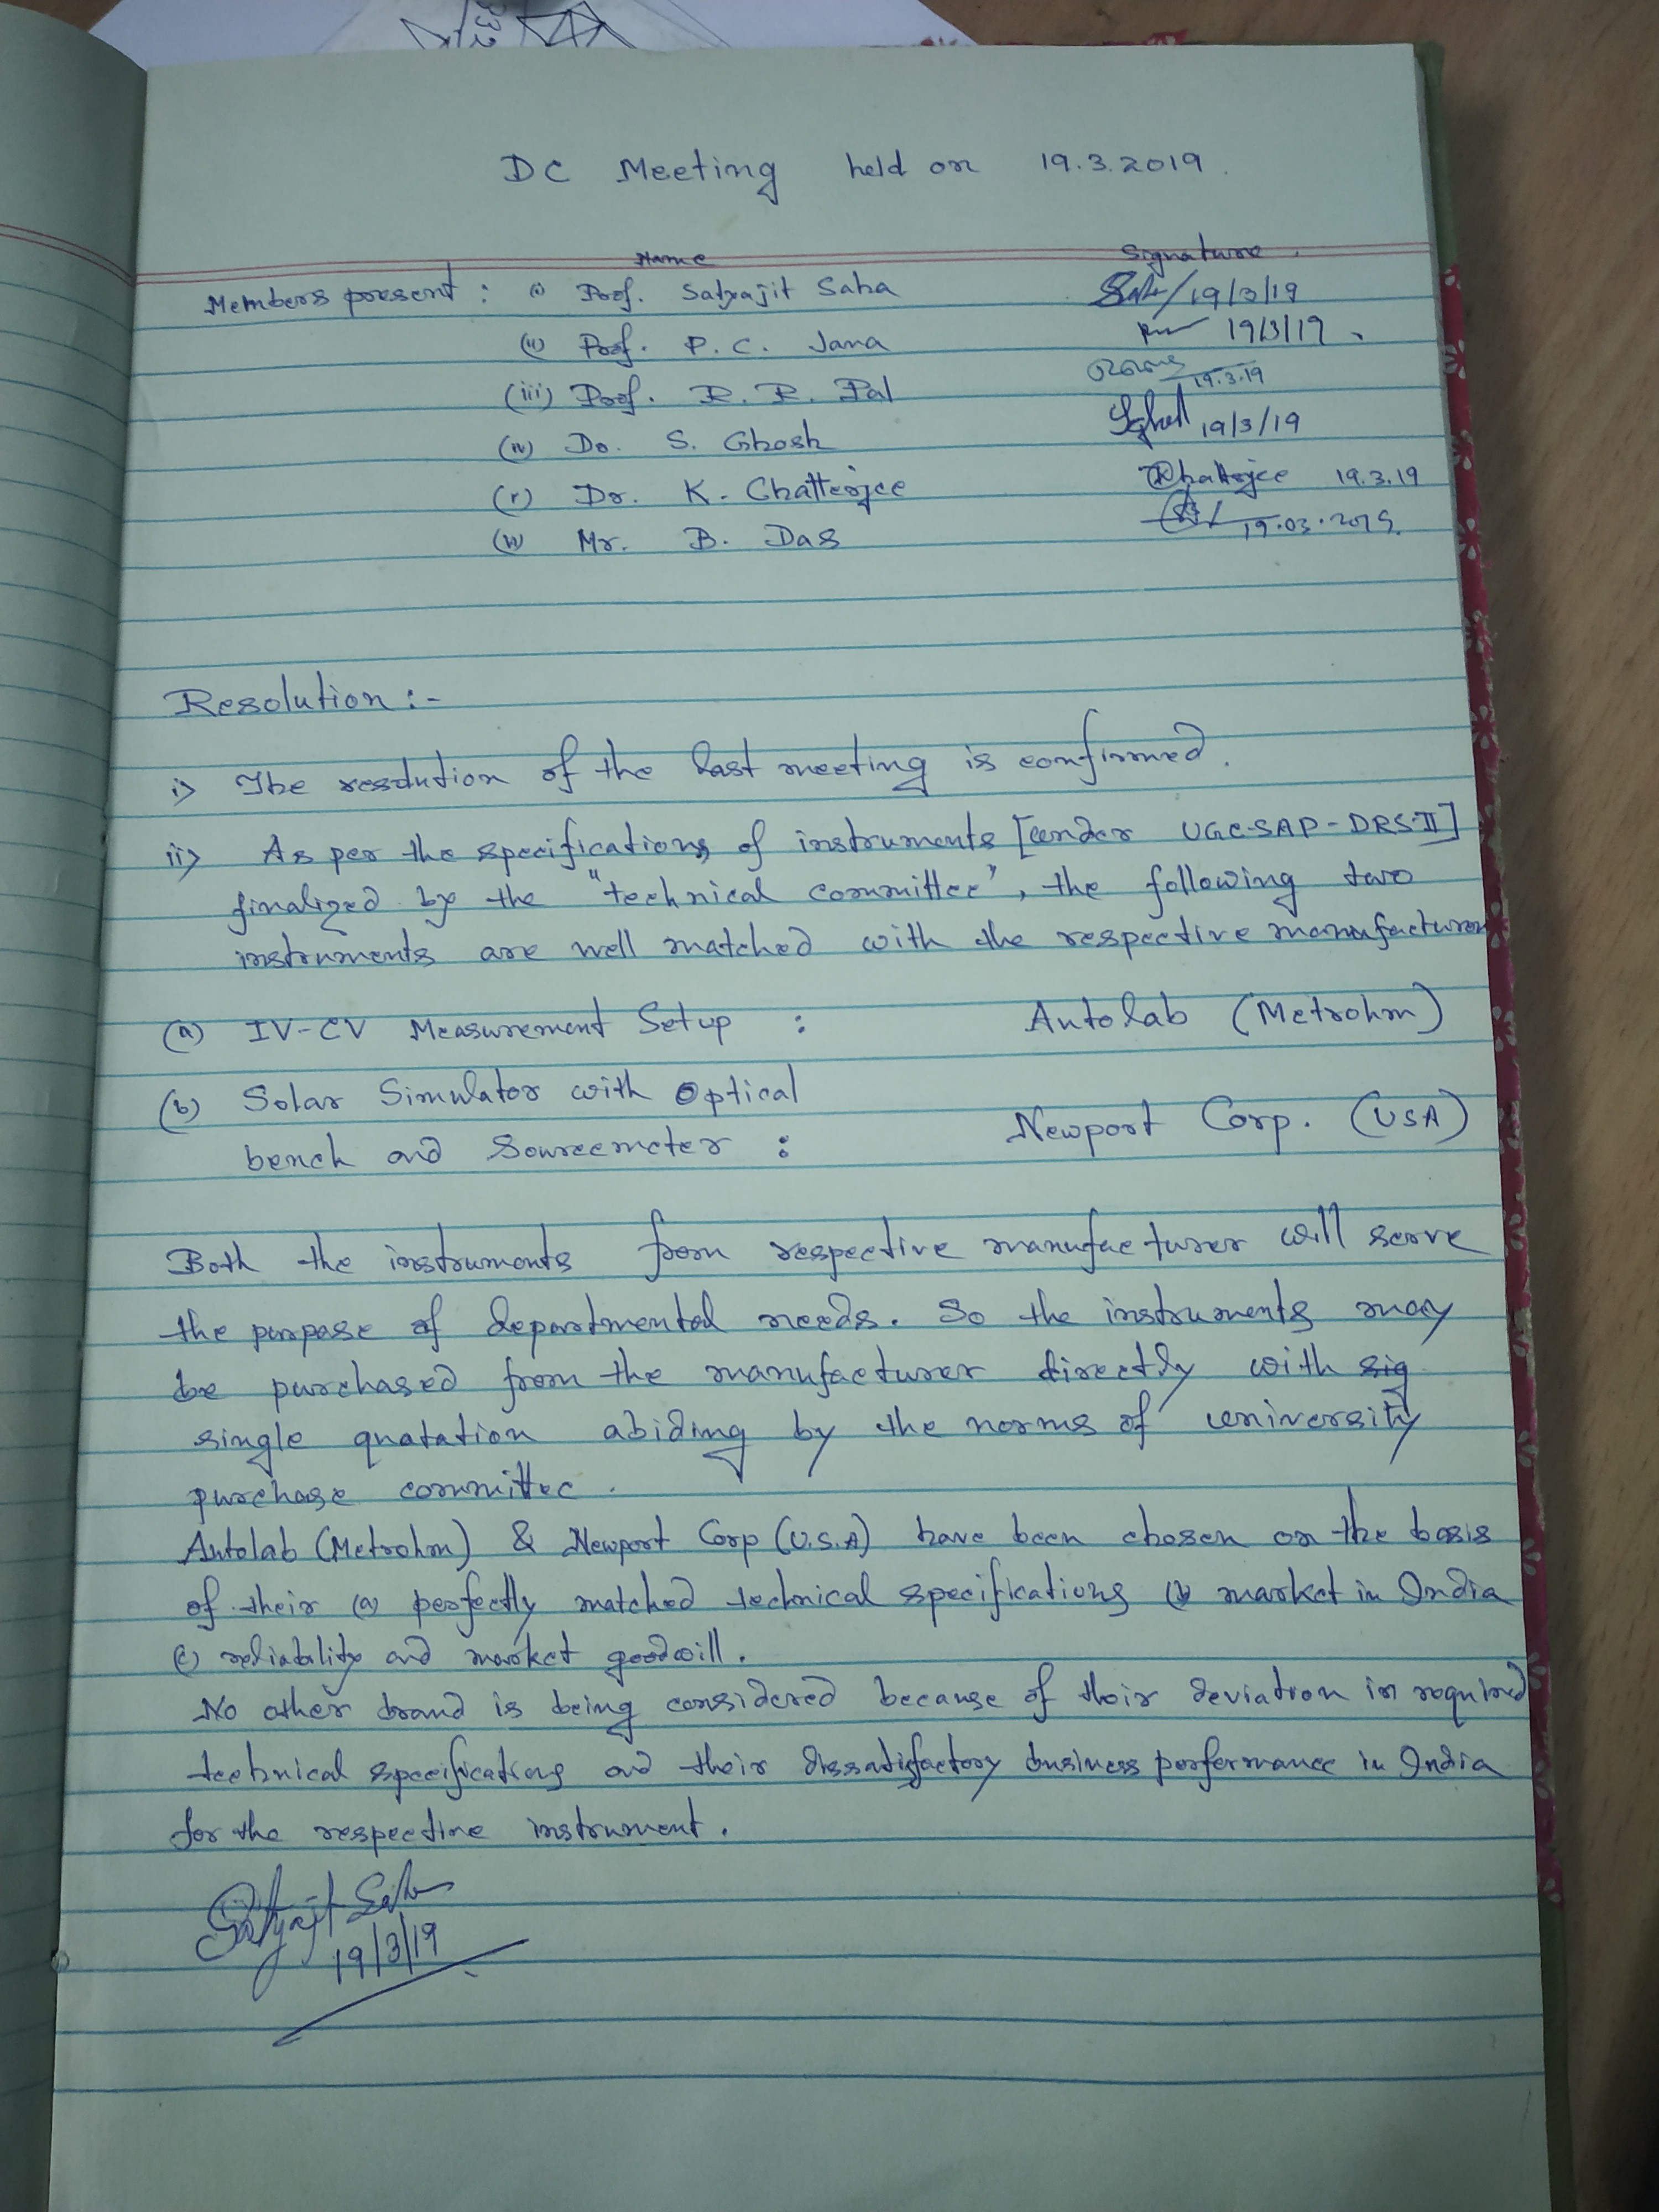 DC Meeting held on 19.3.2019.
Name Signature
Members present : (i) Prof. Satyajit Saha 19/3/19
(ii) Prof. P. C. Jana 19/3/19
(iii) Prof. R. R. Pal 19.3.19
(iv) Dr. S. Ghosh 19/3/19
(v) Dr. K. Chatterjee KChatterjee 19.3.19
(vi) Mr. B. Das 19.03.2019.
Resolution :-
i) The resolution of the last meeting is confirmed.
ii) As per the specifications of instruments [under UGC-SAP-DRS-II]
finalized by the "technical committee", the following two
instruments are well matched with the respective manufacturer
(a) IV-CV Measurement Setup : Autolab (Metrohm)
(b) Solar Simulator with Optical
bench and Sourcemeter : Newport Corp. (USA)
Both the instruments from respective manufacturer will serve
the purpose of departmental needs. So the instruments may
be purchased from the manufacturer directly with sig
single quatation abiding by the norms of university
purchase committee.
Autolab (Metrohm) & Newport Corp (U.S.A) have been chosen on the basis
of their (a) perfectly matched technical specifications (b) market in India
(c) reliability and market goodwill.
No other brand is being considered because of their deviation in required
technical specifications and their dissatisfactory business performance in India
for the respective instrument.
Satyajit Saha
19/3/19